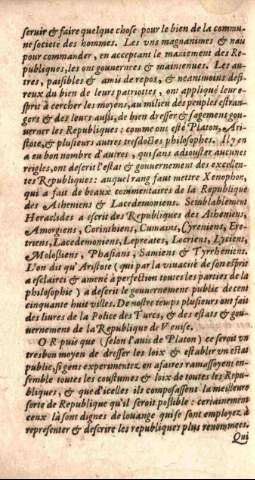 seruir & faire quelque chose pour le bien de la commu-
ne societe des hommes. Les vns magnanimes & nais
pour commander, en acceptant le maniement des Re-
publiques, les ont gouuernees & maintenues. Les au-
tres, paisibles & amis de repos, & neantmoins desi-
reux du bien de leurs patriottes, ont appliqué leur e-
sprit à cercher les moyens, au milieu des peuples estran-
gers & des leurs aussi, de bien dresser & sagement gou-
uerner les Republiques: comme ont esté Platon, Ari-
stote, & plusieurs autres tresdoctes philosophes. Il y en
a eu bon nombre d'autres, qui sans adiouster aucunes
reigles, ont descrit l'estat & gouuernement des excellen-
tes Republiques: auquel rang faut mettre Xenophon,
qui a fait de beaux commentaires de la Republique
des Atheniens & Lacedemoniens. Semblablement
Heraclides a escrit des Republiques des Atheniens,
Amorgiens, Corinthiens, Cumains, Cyreniens, Ere-
triens, Lacedemoniens, Lepreates, Locriens, Lyciens,
Molossiens, Phasians, Samiens & Tyrrheniens.
L'on dit qu'Aristote (qui par la viuacité de son esprit
a esclairci & amené à perfection toutes les parties de la
philosophie) a descrit le gouuernement public de cent
cinquante huit villes. De nostre temps plusieurs ont fait
des liures de la Police des Turcs, & des estats & gou-
uernement de la Republique de Venise.
OR puis que (selon l'auis de Platon) ce seroit vn
tresbon moyen de dresser les loix & establir vn estat
public, si gens experimentez en afaires ramassoyent en-
semble toutes les coustumes & loix de toutes les Repu-
bliques, & que d'icelles ils composassent la meilleure
sorte de Republique qu'il seroit possible: certainement
ceux là sont dignes de louange qui se sont employez à
representer & descrire les republiques plus renommees.
Qui